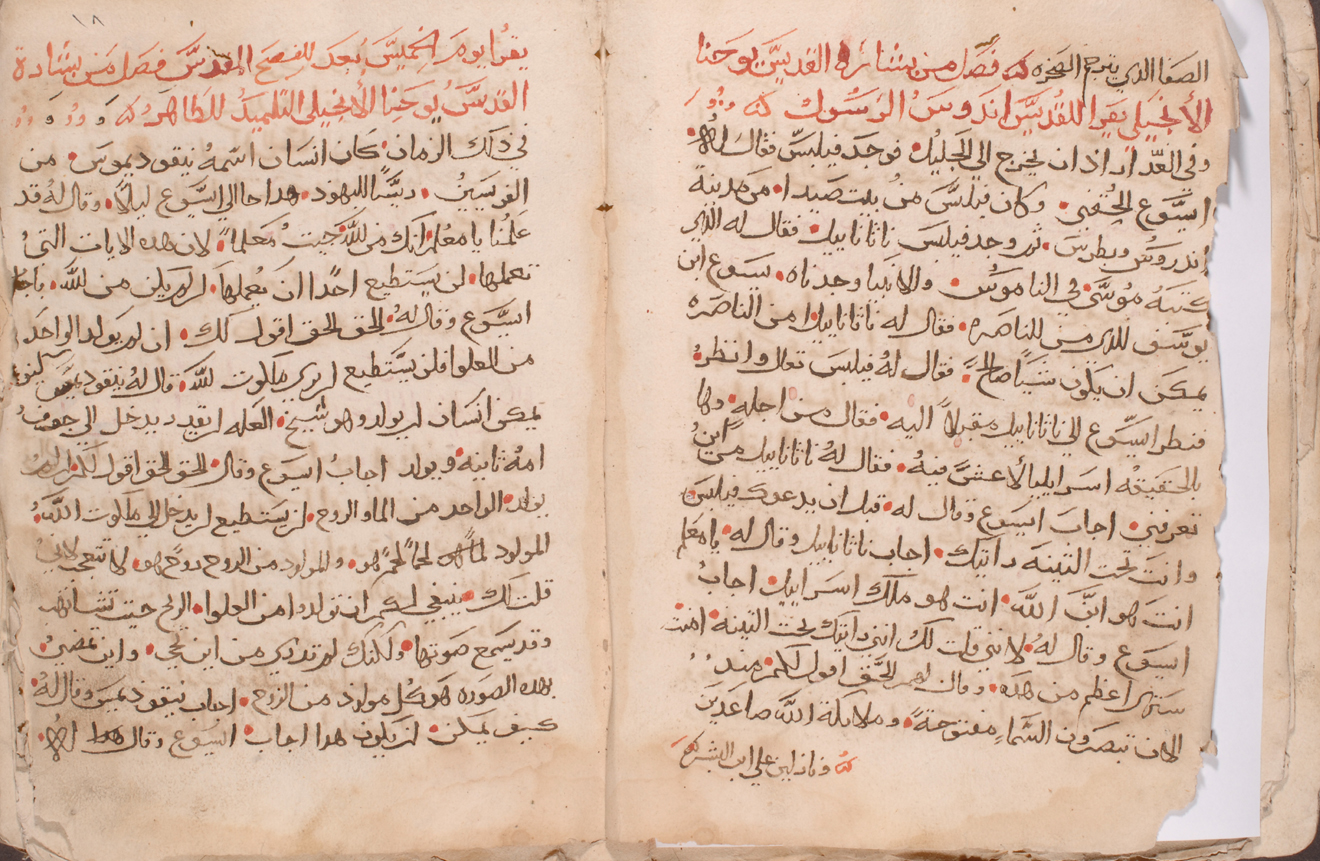 الصفا الذي يترجم الصخره فصل من بشائر القديس يوحنا
الانجيلي يقرا للقديس اندروس الرسول
وفي الغد اراد ان يخرج الي الجليل• فوجد فيلبس فقال له
ايسوع الحقني• وكان فيلبس من بيت صيدا• من مدينة
اندروس وبطرس• ثم وجد فيلبس ناثانابيل• فقال له الذي
كتبه موسى في الناموس• والانبيا وجدناه• يسوع ابن
يوسف الذي من الناصره• فقال له ناثانابيل• امن الناصره
يمكن ان يكون شيا صالح• فقال له فيلبس تعال وانظر•
فنظر ايسوع الي ناثانابيل مقبلاً اليه• فقال من اجله• وها
بالحقيقه اسراييليا لا غش فيه• فقال له ناثانابيل من اين
تعرفني• اجاب ايسوع وقال له• قبل ان يدعوك فيلبس
وانت تحت التينه رايتك• اجاب ناثانابيل وقال له• يا معلم
انت هو ابن الله• انت هو ملك اسراييل• اجاب
ايسوع وقال له• لانني قلت لك انني رايتك تحت التينه• امنت
ستري اعظم من هذه• وقال لهم الحق اقول لكم• منذ
الان تبصرون السماء مفتوحة• وملايكة الله صاعدين
ونازلين علي ابن البشر
١٨
يقرا يوم الخميس بعد الفصح المقدس فصل من بشارة
القديس يوحنا الانجيلي التلميذ الطاهر
في ذلك الزمان• كان انسان اسمه نيقوديموس• من
الفريسيين• ريسًا لليهود• هدا جا الي ايسوع ليلاً• وقال له قد
علمنا يا معلم• انك من الله جيت معلماً• لان هده الايات التي
تعملها• لن يستطيع احدًا ان يعملها• ان لم يكن من الله•
ايسوع وقال له• الحق الحق اقول لك• ان لم يولد الواحد
من العلوا فلن يستطيع ان يري ملكوت الله• قال له نيقوديمس كيف
يمكن انسان ان يولد وهو شيخ• العله ان يقدر يدخل الي جوف
امه ثانيه• ويولد اجاب ايسوع وقال• الحق الحق اقول لك• ان لم
يولد• الواحد من الما والروح• لن يستطيع ان يدخل الي ملكوت الله•
المولود لحمًا لحم هو• والمولود من الروح روح هو• لا تتعجب لاني
قلت لك• ينبغي لكم ان تولدوا من العلوا• الريح حيت تشا تهب
وقد يسمع صوتها• ولكنك لم تدري من اين تجي• واين تمضي•
بهده الصوره هو كل مولود من الروح• اجاب نيقوديمس وقال له•
كيف يمكن• ان يكون هدا اجاب• ايسوع وقال له•